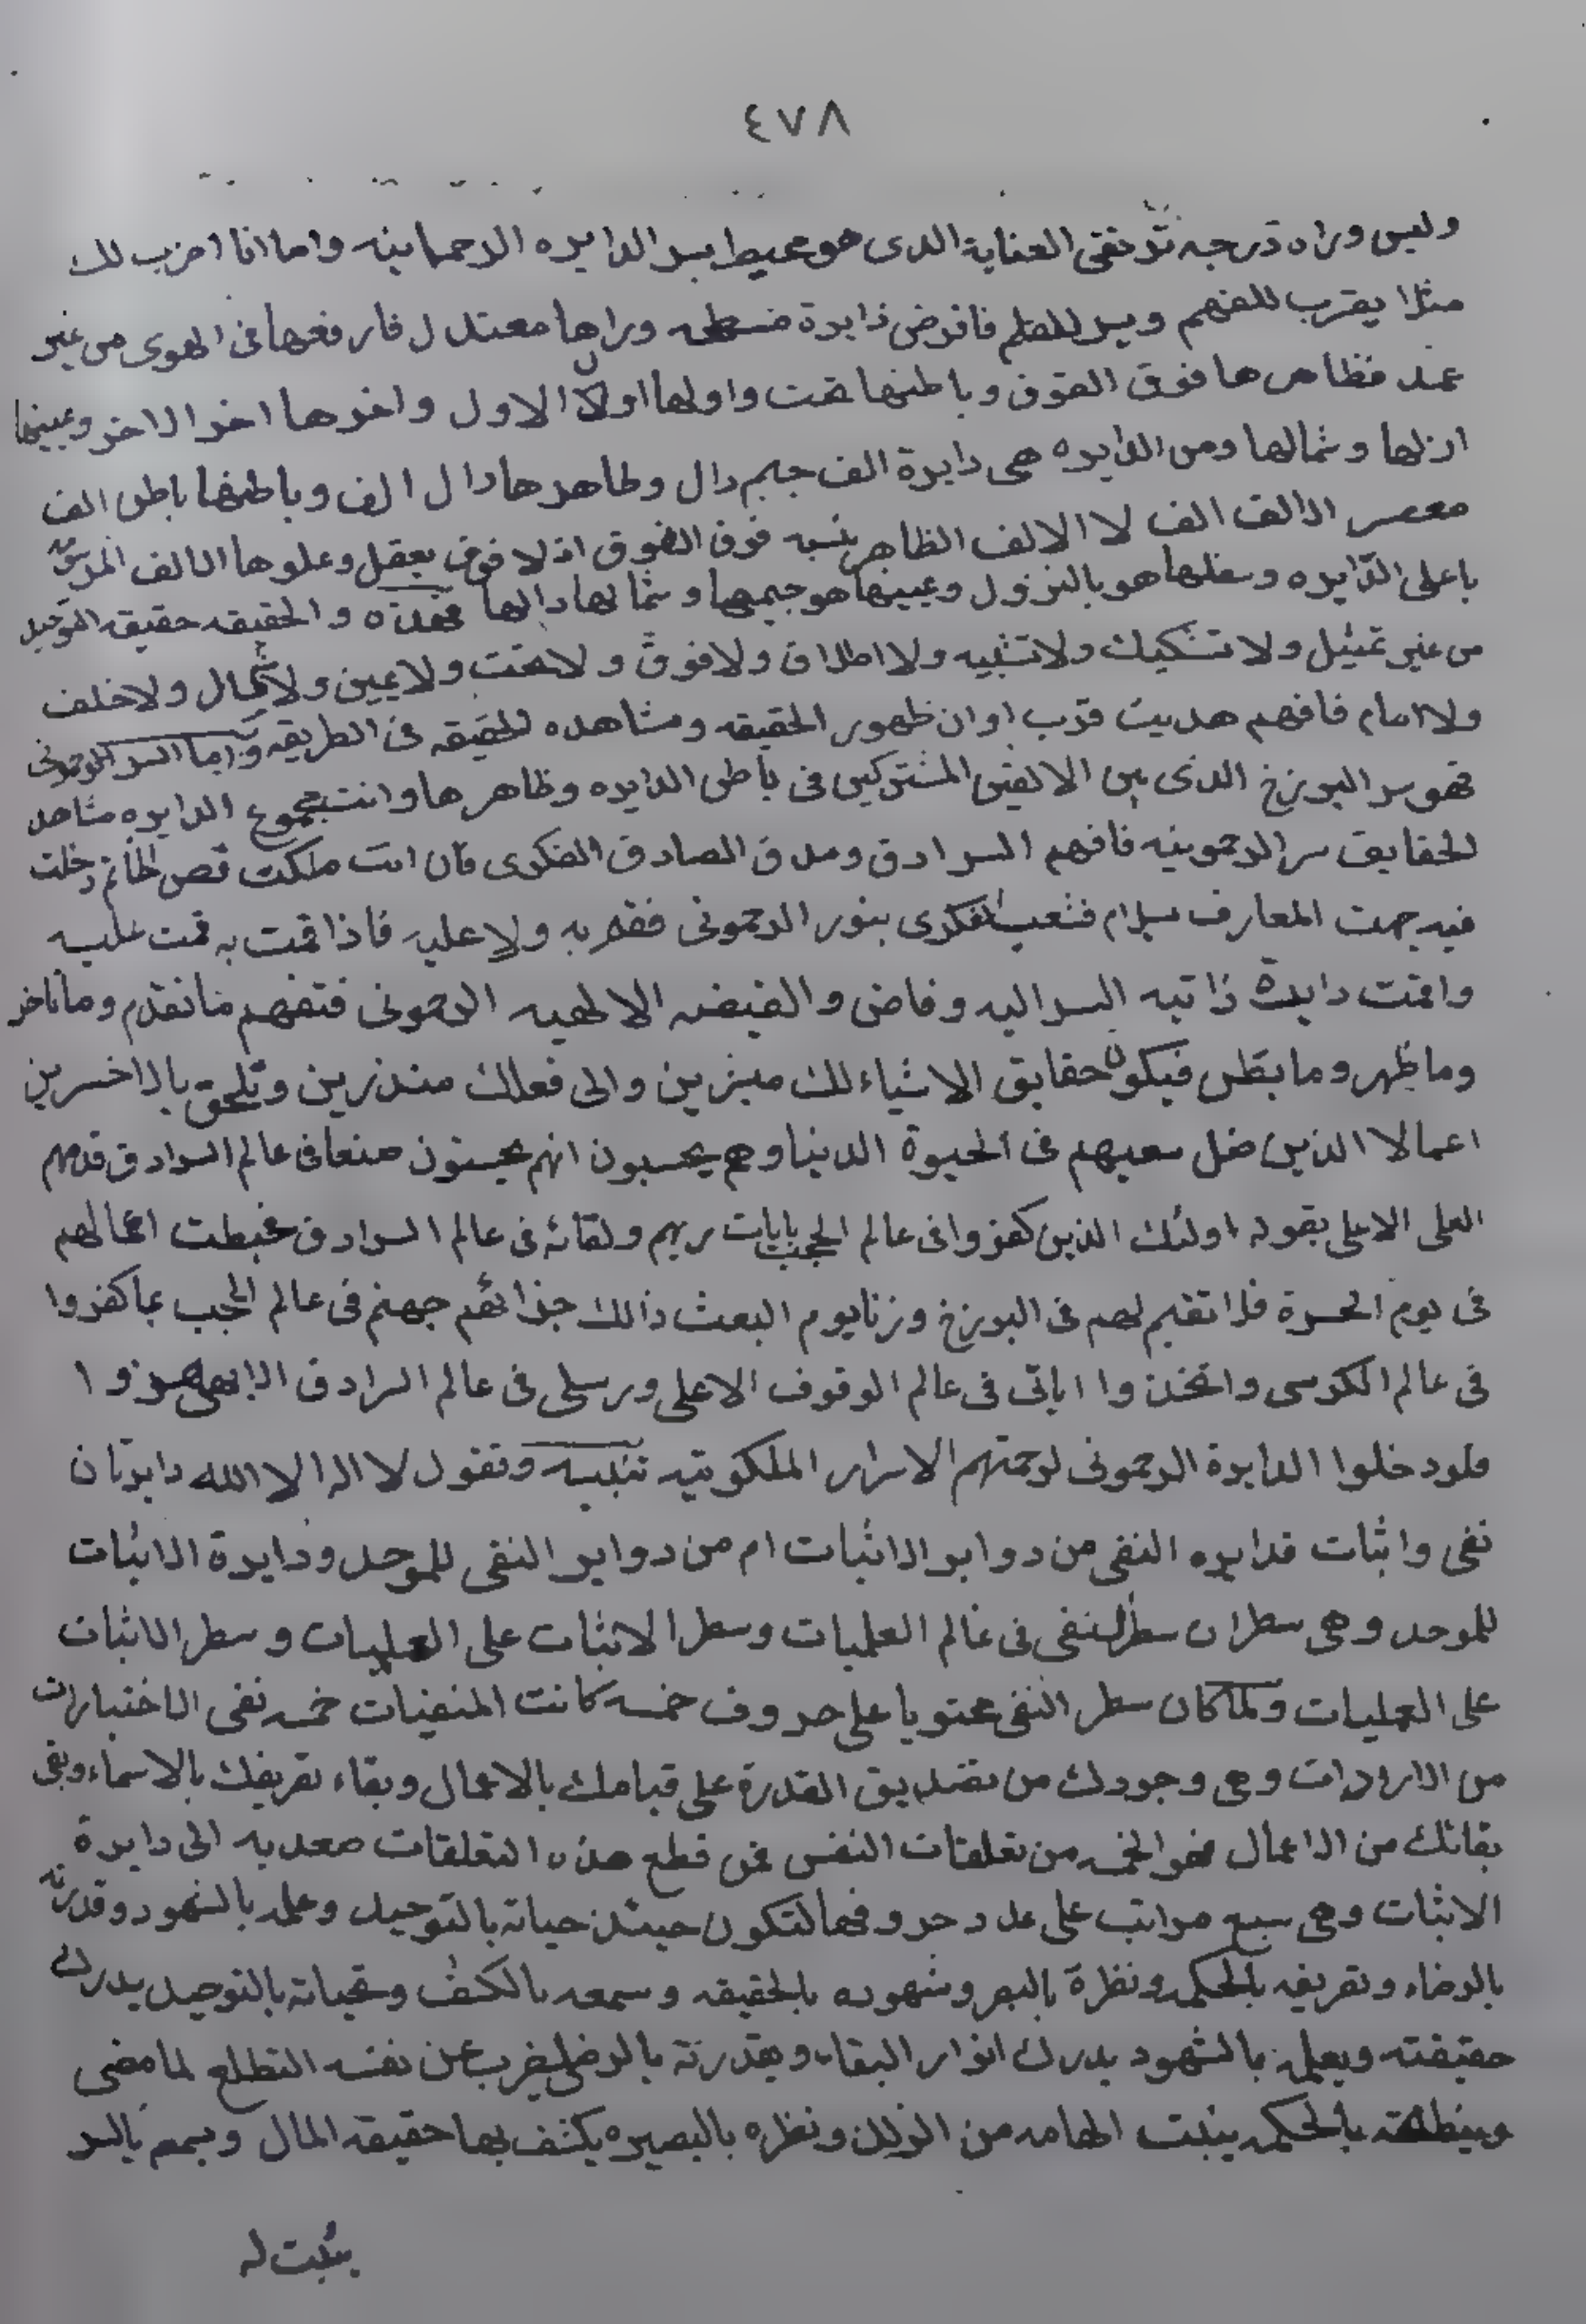 ٤٧٨
وليس وراه درجه ترتقى العناية الدى هو محيط بسر الدايره الرحمانيه واما انا اضرب لك
مثلا يقرب للفهم وسر للعلم فافرض دايرة وراها معتدل فارفعها فى الهوى من غير
عمد فظاهرها فوق الفوق وباطنها تحت واولها اول الاول واخرها اخر الاخر ويمينها
اولها وشمالها ومن الدايره هى دايرة الف جيم دال وظاهرها دال الف وباطنها باطن الف
الالف الف لا الالف الظاهر بنسبه فوق الفوق اذ لا فوق يعقل وعلوها الالف
باعلى الدايره وسفلها هو بالنزول ويمينها هو جيمها وشمالها دالها والحقيقه حقيقه التوحيد
من غير تمثيل ولا تشكيك ولا تشبيه ولا اطلاق ولا فوق ولا تحت ولا يمين ولا شمال ولا خلف
ولا امام فافهم هديت قرب اوان ظهور الحقيقه ومشاهده الحقيقه فى الطريقه واما السر الرحمونى
فهو سر البرزخ الدى بين الالفين المشتركين فى باطن الدايره وظاهرها وانت بمجموع الدايره مشاهد
لحقايق سر الرحمونيه فافهم السرادق وصدق الصادق الفكرى فان انت ملكت فص الخاتم دخلت
فيه جهت المعارف بسلام الفكرى بنور الرحمونى فقم به ولا عليه فاذا قمت به قمت عليه
واقمت دايرة ذاتيه السر اليه وفاض والفيضه الالهيه الرحمونى فتفهم ما تقدم وما تاخر
وما ظهر وما بطن فيكون حقايق الاشياء لك مبرزين والى فعلك منذرين وتلحق بالاخسرين
اعمالا الذين ضل سعيهم فى الحيوة الدنيا وهم يحسبون انهم يحسنون صنعا فى عالم السرادق قدمهم
العلى الاعلى بقوله اولئك الذين كفروا فى عالم الحجب بايات ربهم ولقائه فى عالم السرادق فحبطت اعمالهم
فى يوم الحسرة فلا تقيم لهم فى البرزخ وزنا يوم البعث ذالك جزائهم جهنم فى عالم الحجب بما كفروا
فى عالم الكرسى واتخذوا اياتى فى عالم الوقوف الاعلى ورسلى فى عالم السرادق الابهى هزوا
فلو دخلوا الدايرة الرحمونى لرحمتهم الاسرار الملكوتيه تنبيه وتقول لا اله الا الله دايرتان
نفى واثبات فدايره النفى من دواير الاثبات ام من دواير النفى للموحد ودايرة الاثبات
للموحد وهى سطران سطر النفى فى عالم العلميات وسطر الاثبات على العمليات وسطر الاثبات
على العمليات ولما كان سطر النفى محتويا على حروف خمسه كانت المنفيات خمسه نفى الاختيارات
من الارادات وهى وجودك من تصديق القدرة على قيامك بالاعمال وبقاء تعريفك بالاسماء وبقى
بقائك من الاعمال من تعلقات النفس فمن قطع هذه التعلقات صعد به الى دايرة
الاثبات وهى سبع مراتب على عدد حروفها لتكون حينئذ حياته بالتوحيد وعلمه بالشهود وقدرته
بالرضاء وتعريفه بالحكمه ونظرة بالبصر وشهوده بالحقيقه وسمعه بالكشف وبحياته بالتوحيد يدرك
حقيقته وبعلمه بالشهود يدرك انوار البقاء وبقدرته بالرضى يغرب عن نفسه التطلع لما مضى
بالحكمه يثبت الهامه من الزلل ونظره بالبصيره يكشف بها حقيقه المال وبسمعه بالسر
يثبت له